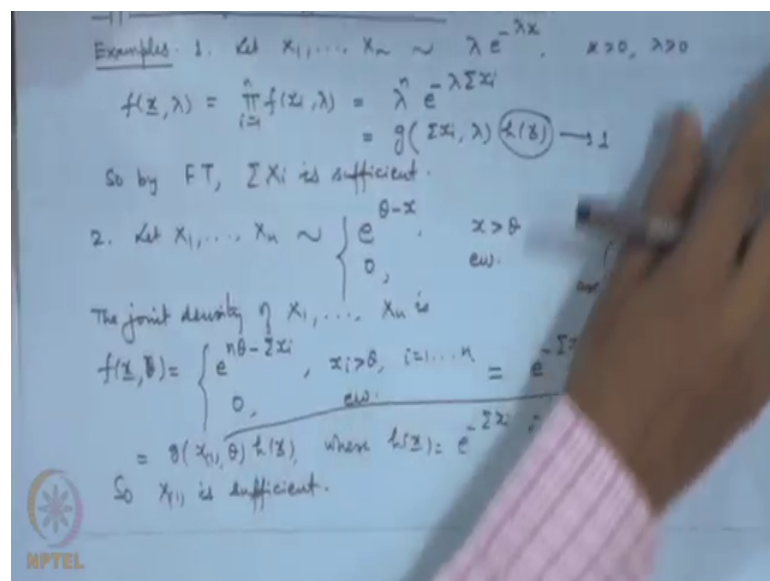 Examples. 1. Let X₁, ..., Xₙ ~ λ e^{-λx}, x>0, λ>0
f(x̲, λ) = ∏_{i=1}^{n} f(xᵢ, λ) = λⁿ e^{-λΣxᵢ}
= g(Σxᵢ, λ) h(x̲) → 1
So by FT, ΣXᵢ is sufficient.
2. Let X₁, ..., Xₙ ~ { e^{θ-x}, x>θ
0, ew.
The joint density of X₁, ..., Xₙ is
f(x̲, θ) = { e^{nθ-Σxᵢ}, xᵢ>θ, i=1...n = e^{-Σx
0, ew.
= g(x₍₁₎, θ) h(x̲), where h(x̲) = e^{-Σxᵢ}
So X₍₁₎ is sufficient.
NPTEL